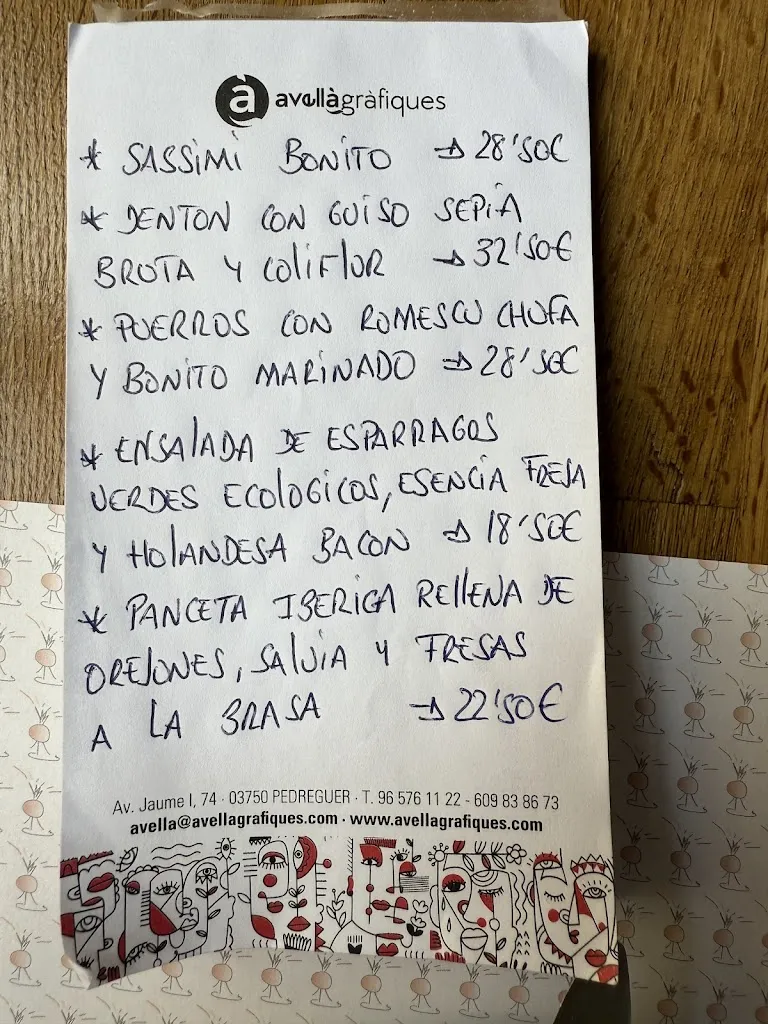 a avellàgràfiques
* SASSIMI BONITO → 28'50€
* DENTON CON GUISO SEPIA
BRUTA Y COLIFLOR → 32'50€
* PUERROS CON ROMESCU CHUFA
Y BONITO MARINADO → 28'50€
* ENSALADA DE ESPARRAGOS
VERDES ECOLOGICOS, ESENCIA FRESA
Y HOLANDESA BACON → 18'50€
* PANCETA IBERICA RELLENA DE
OREJONES, SALVIA Y FRESAS
A LA BRASA → 22'50€
Av. Jaume I, 74 · 03750 PEDREGUER · T. 96 576 11 22 - 609 83 86 73
avella@avellagrafiques.com · www.avellagrafiques.com